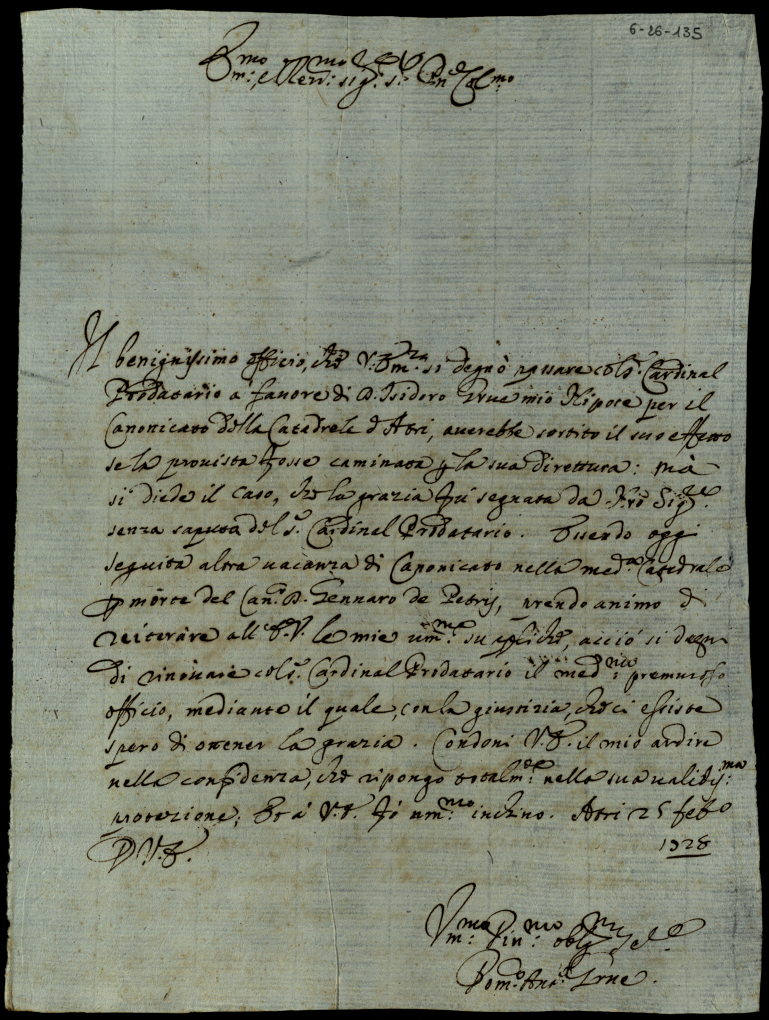 6-26-135
Em:mo e Rev:mo Sig.r S.r P͞ne Col.mo
Il benignissimo officio, che V. Em:za si degnò passare col S.r Cardinal
Prodatario a favore di D. Isidoro Grue mio Nipote per il
Canonicato della Catedrale d'Atri, averebbe sortito il suo effetto
se la provista fosse caminata p la sua direttura: mà
si diede il caso, che la grazia fu segnata da N͞ro Sig.re
senza saputa del S.r Cardinal Prodatario. Essendo oggi
seguita altra vacanza di Canonicato nella med.a Catedrale
p morte del Can.co D. Gennaro de Petris, prendo animo di
reiterare all'E.V. le mie um:me suppliche, acciò si degni
di rinovare col S.r Cardinal Prodatario il med:mo premuroso
officio, mediante il quale, con la giustizia, che ci assiste
spero di ottener la grazia. Condoni V.E. il mio ardire
nella confidenza, che ripongo totalm:te nella sua validis:ma
protezione; Et a V.E. fò um:mo inchino. Atri 25 feb.o
D V.E. 1728
Um:mo Div:mo obl:mo
Dom.co Ant.o Grue.